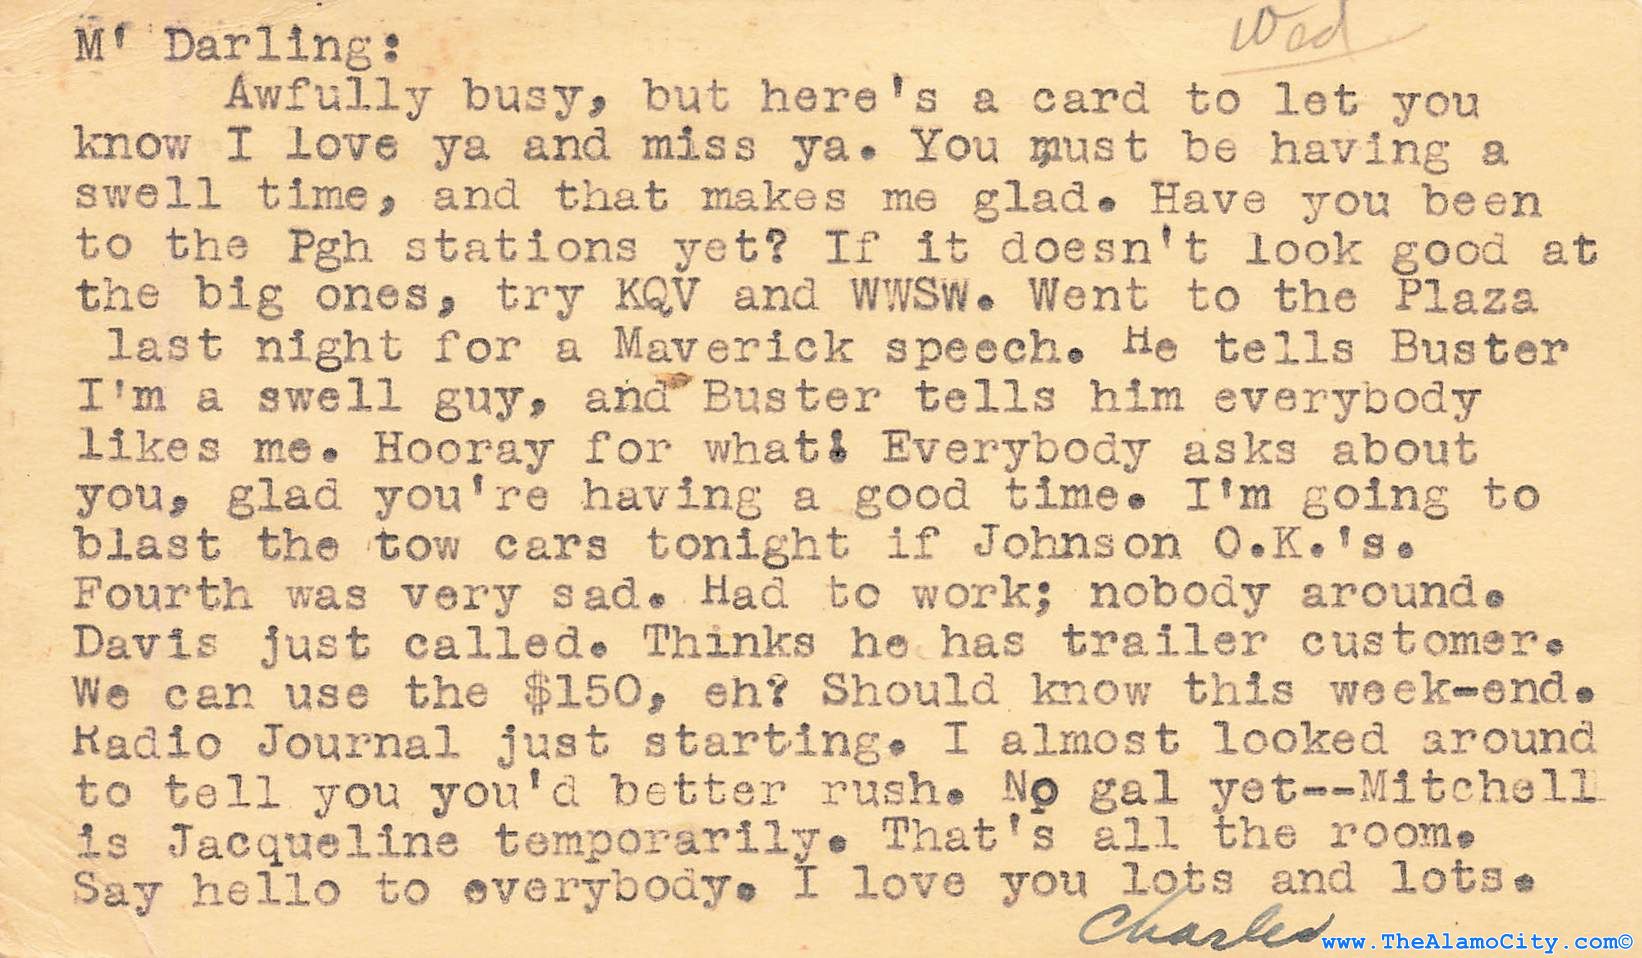 Wed
M' Darling:
Awfully busy, but here's a card to let you
know I love ya and miss ya. You must be having a
swell time, and that makes me glad. Have you been
to the Pgh stations yet? If it doesn't look good at
the big ones, try KQV and WWSW. Went to the Plaza
last night for a Maverick speech. He tells Buster
I'm a swell guy, and Buster tells him everybody
likes me. Hooray for what! Everybody asks about
you, glad you're having a good time. I'm going to
blast the tow cars tonight if Johnson O.K.'s.
Fourth was very sad. Had to work; nobody around.
Davis just called. Thinks he has trailer customer.
We can use the $150, eh? Should know this week-end.
Radio Journal just starting. I almost looked around
to tell you you'd better rush. No gal yet--Mitchell
is Jacqueline temporarily. That's all the room.
Say hello to everybody. I love you lots and lots.
Charles
www.TheAlamoCity.com©